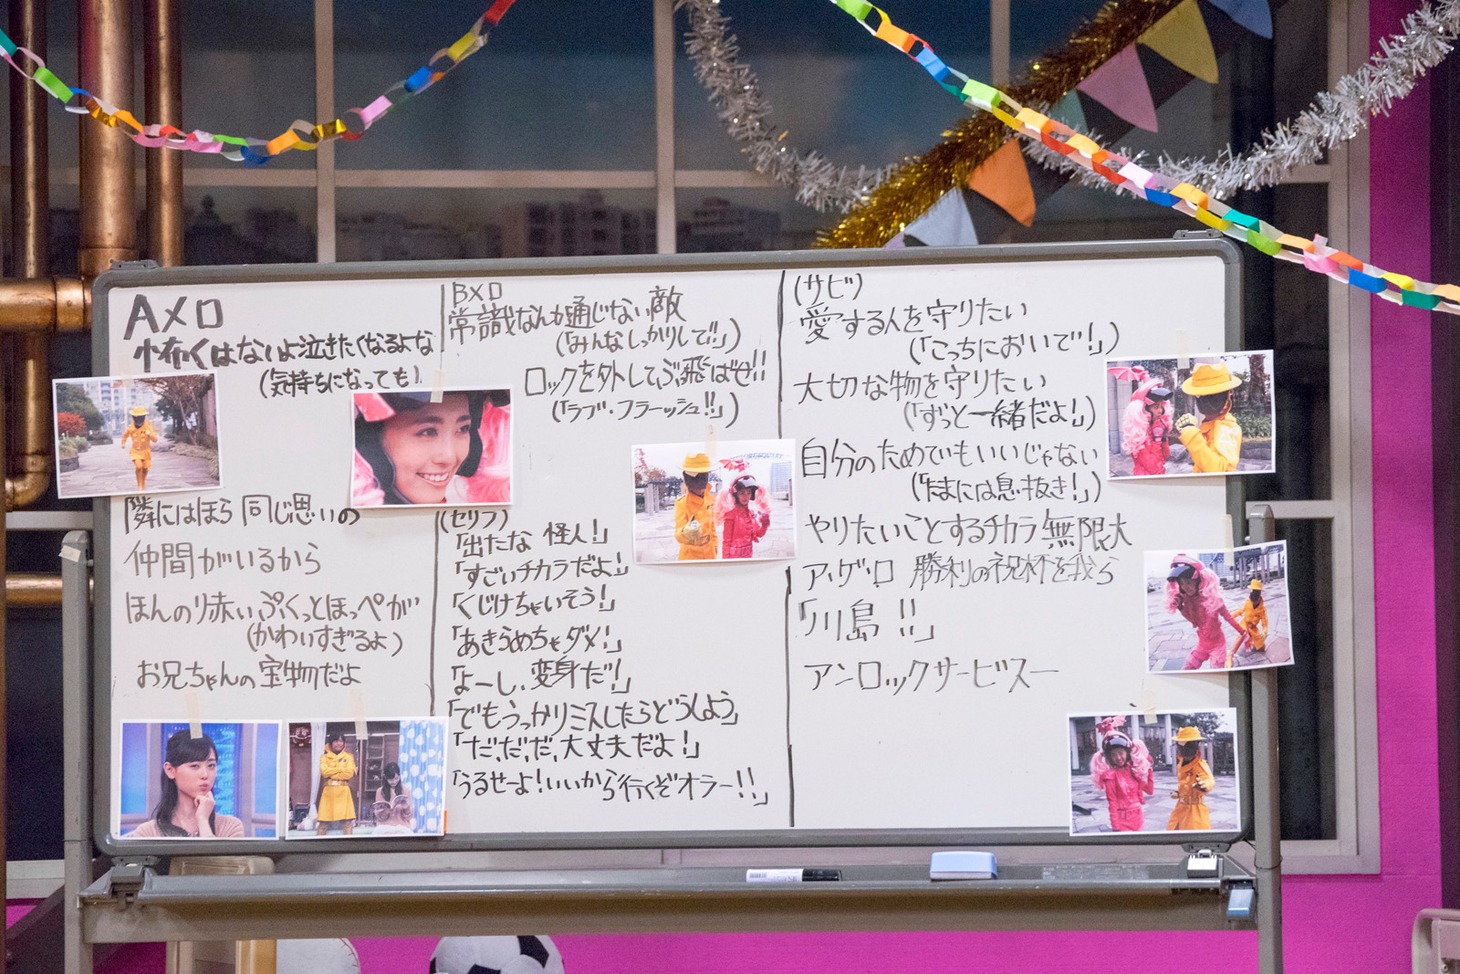 Aメロ
怖くはないよ泣きたくなるよな
(気持ちになっても)
隣にはほら同じ思いの
仲間がいるから
ほんのり赤いぷくっとほっぺが
(かわいすぎるよ)
お兄ちゃんの宝物だよ
Bメロ
常識なんか通じない敵
(「みんなしっかりして!」)
ロックを外してぶっ飛ばせ!!
(「ラブ・フラーッシュ!!」)
(セリフ)
「出たな 怪人!」
「すごいチカラだよ!」
「くじけちゃいそう!」
「あきらめちゃダメ!」
「よーし、変身だ!」
「でもうっかりミスしたらどうしよう」
「だ、だ、だ、大丈夫だよ!」
「うるせーよ!いいから行くぞオラー!!」
(サビ)
愛する人を守りたい
(「こっちにおいで!」)
大切な物を守りたい
(「ずっと一緒だよ!」)
自分のためでもいいじゃない
(「たまには息抜き!」)
やりたいことするチカラ無限大
ア・ゲ・ロ 勝利の祝杯を我ら
「川島!!」
アンロックサービスー